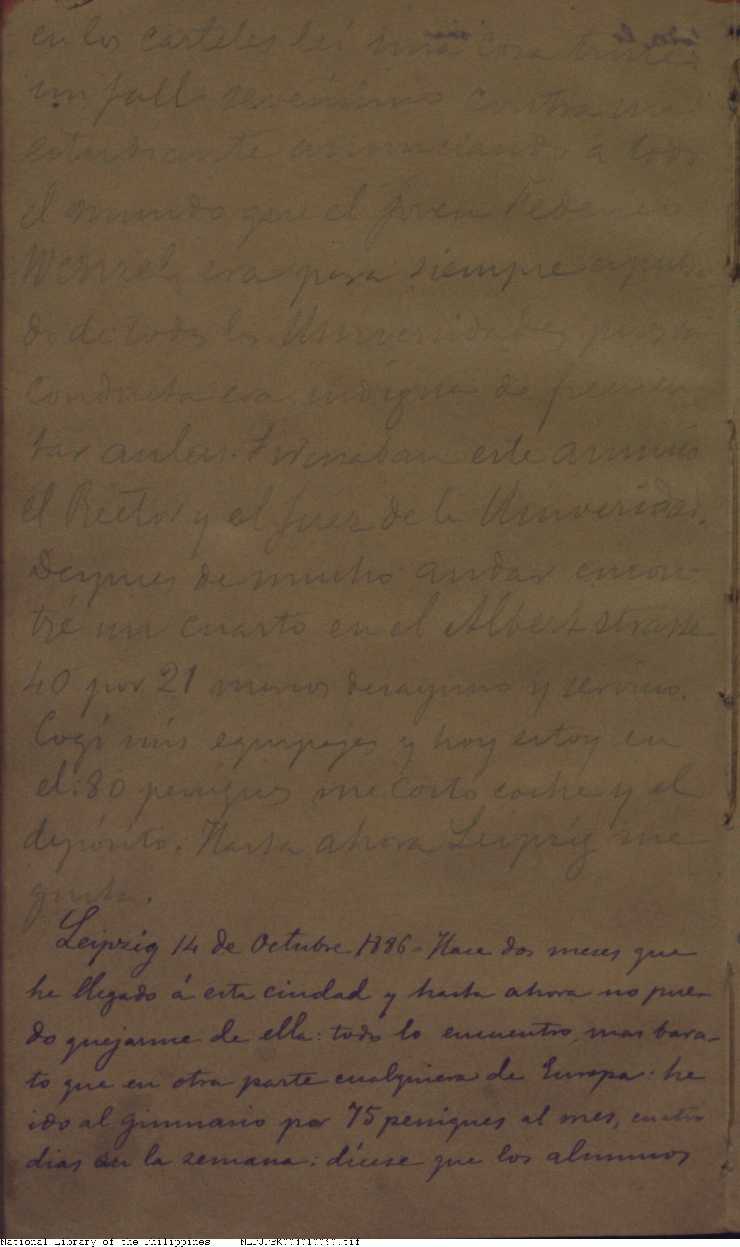 en los carteles leí una cosa triste:
un fallo severísimo contra un
estudiante anunciando á todo
el mundo que el joven Federico
Wenzel era para siempre expulsa-
do de todas las Universidades pues su
conducta era indigna de frecuen-
tar aulas. Firmaban este anuncio
el Rector y el juez de la Universidad.
Despues de mucho andar encon-
tré un cuarto en el Albertstrasse
40 por 21 marcos desayuno y servicio.
Cogí mis equipajes y hoy estoy en
el: 80 peniques me costó coche y el
depósito. Hasta ahora Leipzig me
gusta.
Leipzig 14 de Octubre 1886 - Hace dos meses que
he llegado á esta ciudad y hasta ahora no pue-
do quejarme de ella: todo lo encuentro mas bara-
to que en otra parte cualquiera de Europa: he
ido al gimnasio por 75 peniques al mes, cuatro
dias en la semana: dícese que los alumnos
National Library of the Philippines